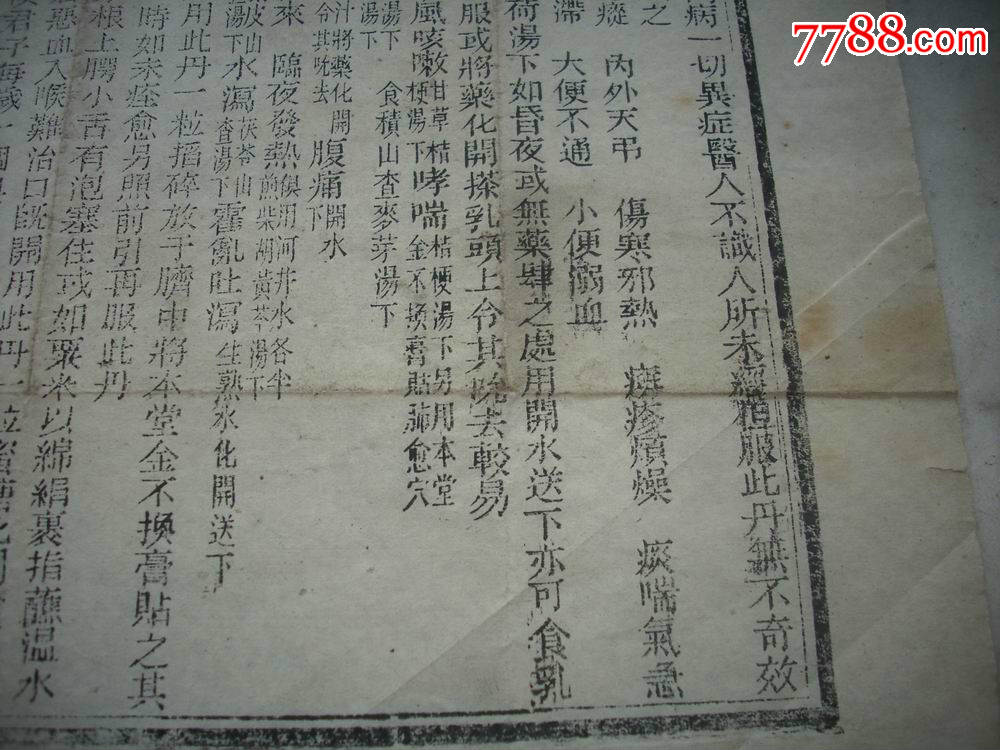 7788.com
病一切異症醫人不識人所未經但服此丹無不奇效
之 內外天弔 傷寒邪熱 痘疹煩燥 痰喘氣急
癡 大便不通 小便溺血
滯
荷湯下如昏夜或無藥肆之處用開水送下亦可食乳
服或將藥化開搽乳頭上令其吮去較易
風咳嗽甘草桔梗湯下 哮喘桔梗湯下另用本堂金不換膏貼肺愈穴
湯下 食積山查麥芽湯下
汁將藥化開令其吮去 腹痛開水下
來 臨夜發熱俟用河井水各半煎柴胡黃芩湯下
湯下 水瀉茯苓山查湯下 霍亂吐瀉生熟水化開送下
用此丹一粒搯碎放于臍中將本堂金不換膏貼之其
時如未痊愈另照前引再服此丹
根上腭小舌有泡塞住或如粟米以綿絹裹指蘸溫水
惡血入喉難治口既開用此丹一粒
君子每歲一個